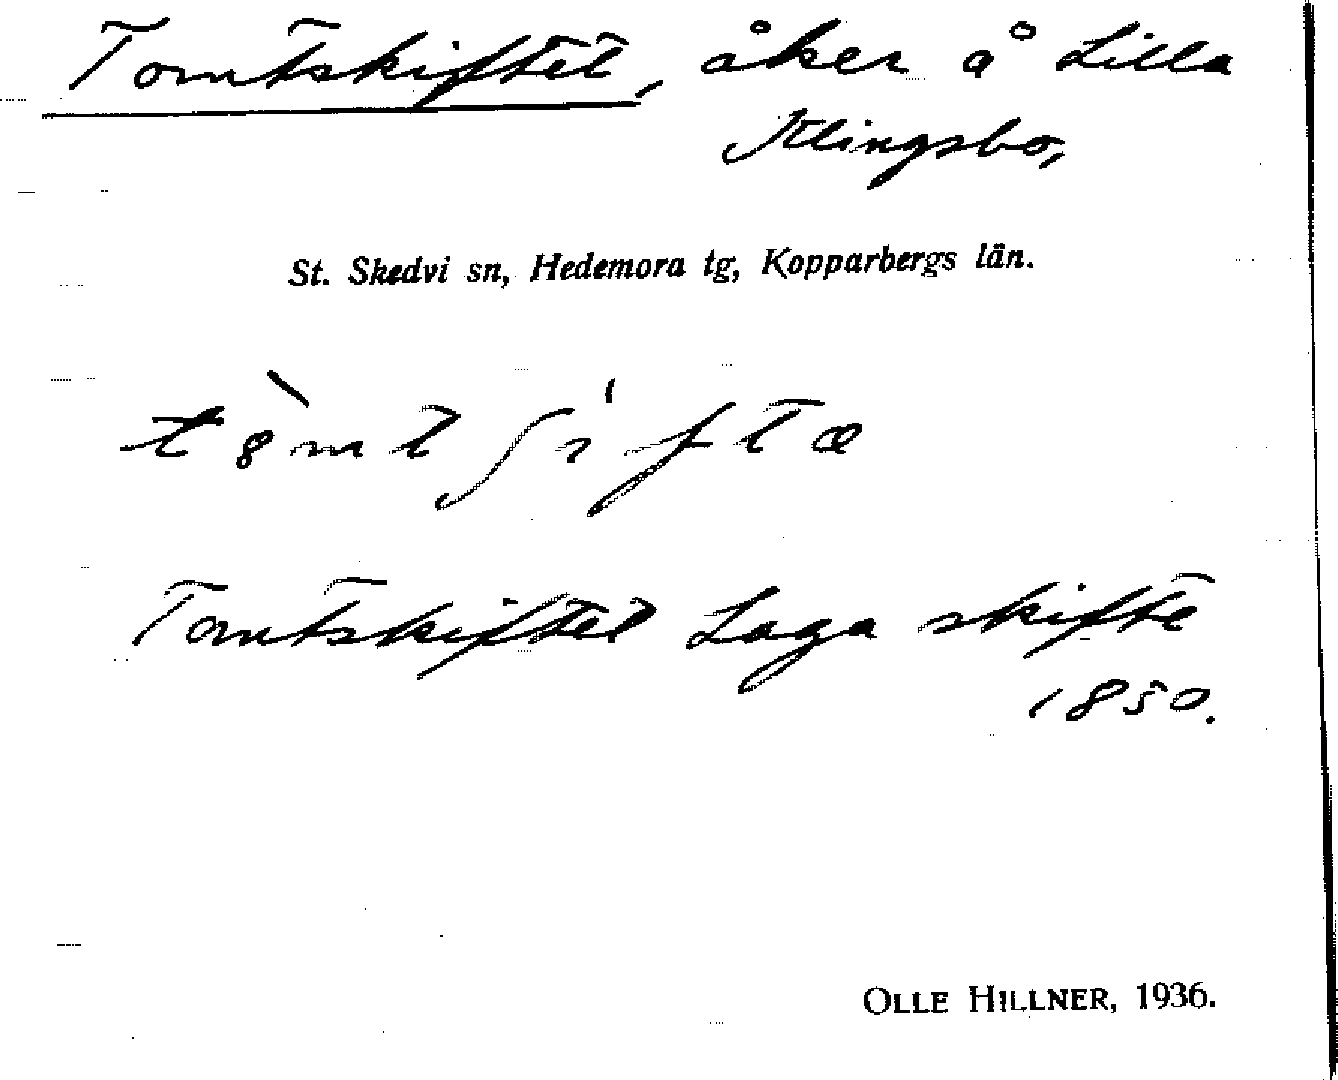 Tomtskiftet, åker å Lilla
Klingsbo,
St. Skedvi sn, Hedemora tg, Kopparbergs län.
Tomtskiftet Laga skifte
1850.
OLLE HILLNER, 1936.